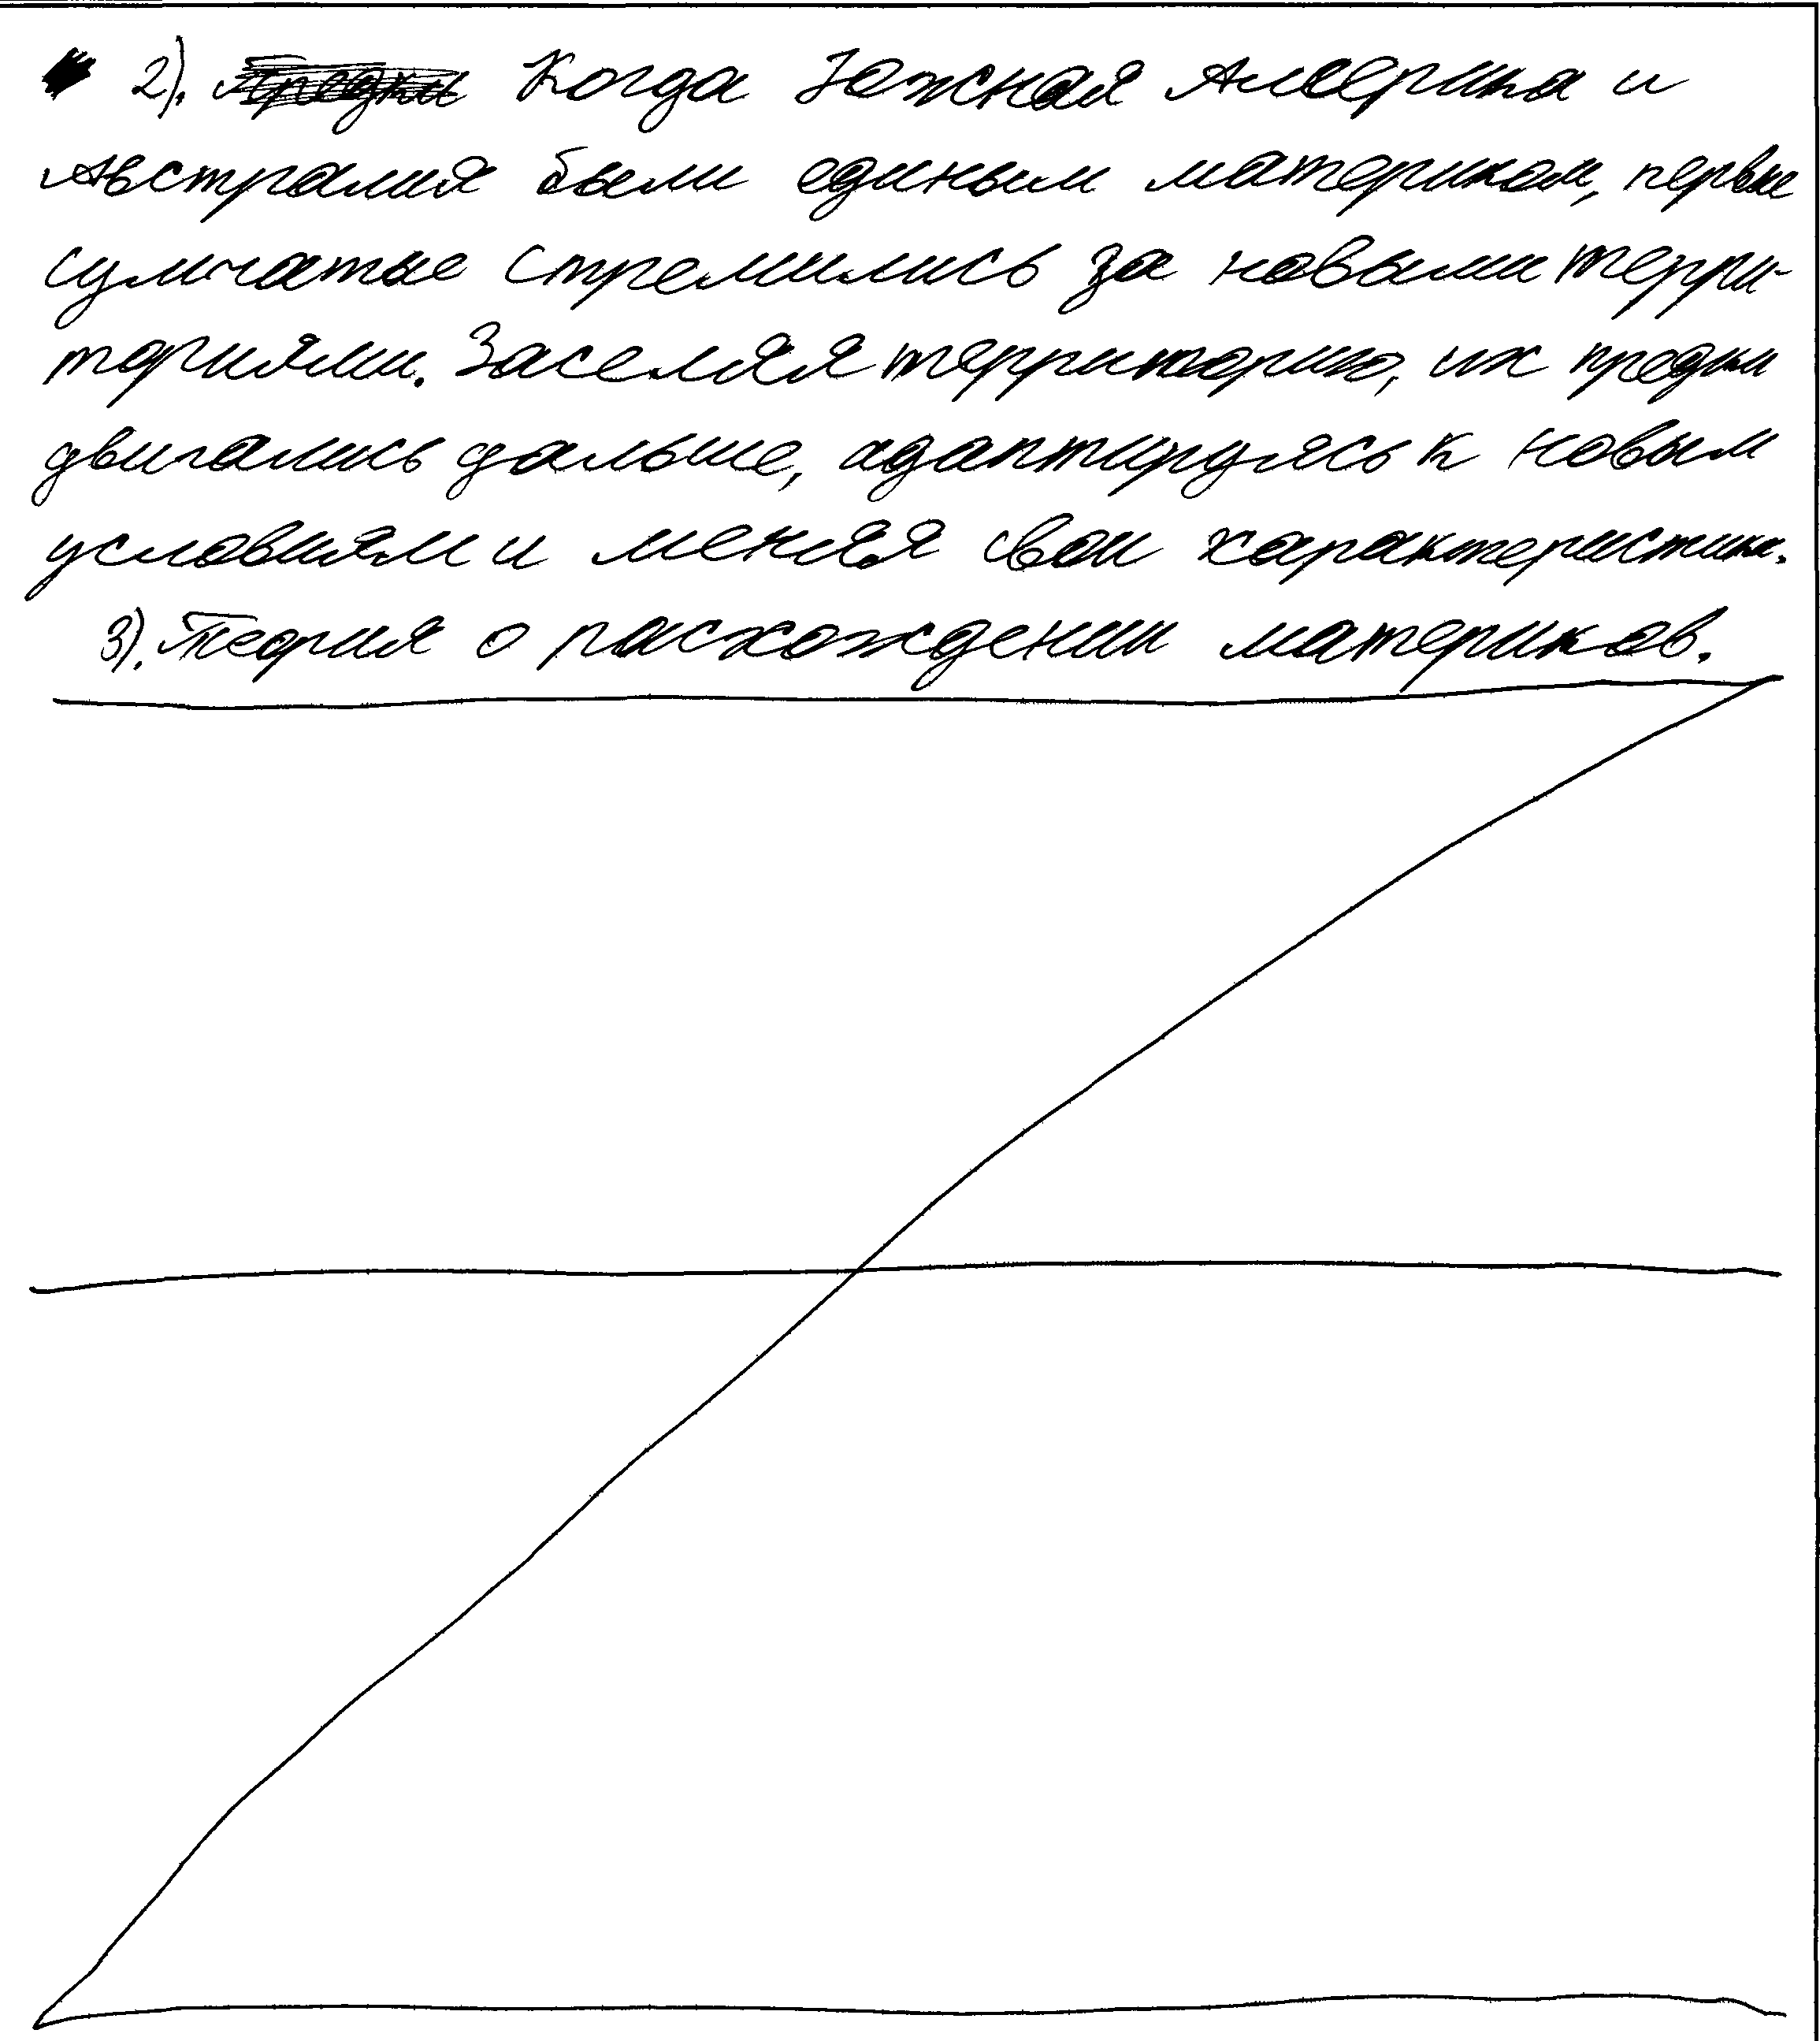 2). Когда Южная Америка и
Австралия были единым материком, первые
сумчатые стремились за новыми терри-
ториями. Заселяя территорию, их предки
двигались дальше, адаптируясь к новым
условиям и меняя свои характеристики.
3). Теория о расхождении материков.